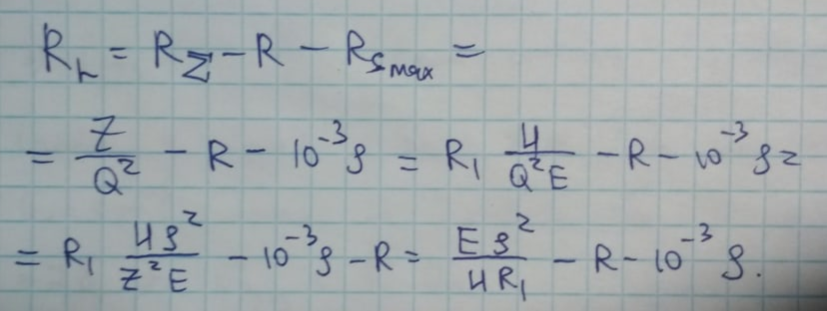 R_h = R_Σ - R - R_{ρ_{max}} =
= \frac{Z}{Q^2} - R - 10^{-3}ρ = R_1 \frac{4}{Q^2 E} - R - 10^{-3}ρ =
= R_1 \frac{4ρ^2}{Z^2 E} - 10^{-3}ρ - R = \frac{Eρ^2}{4R_1} - R - 10^{-3}ρ.